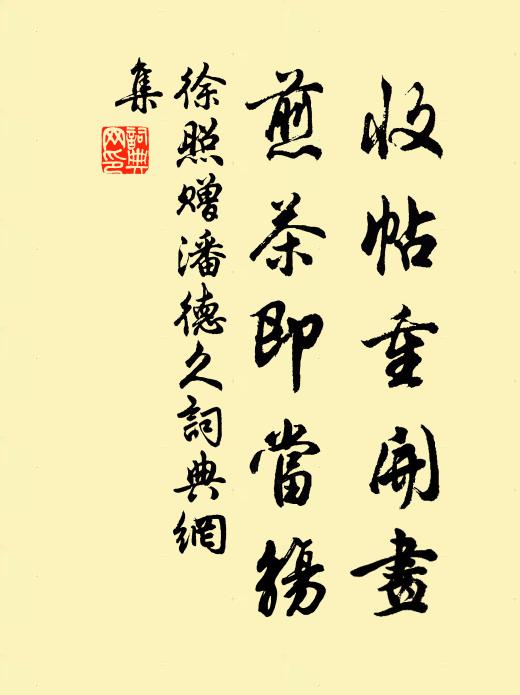 收帖重開畫
煎茶即當觴
徐照贈潘德久詞典網
集
詞典
网印